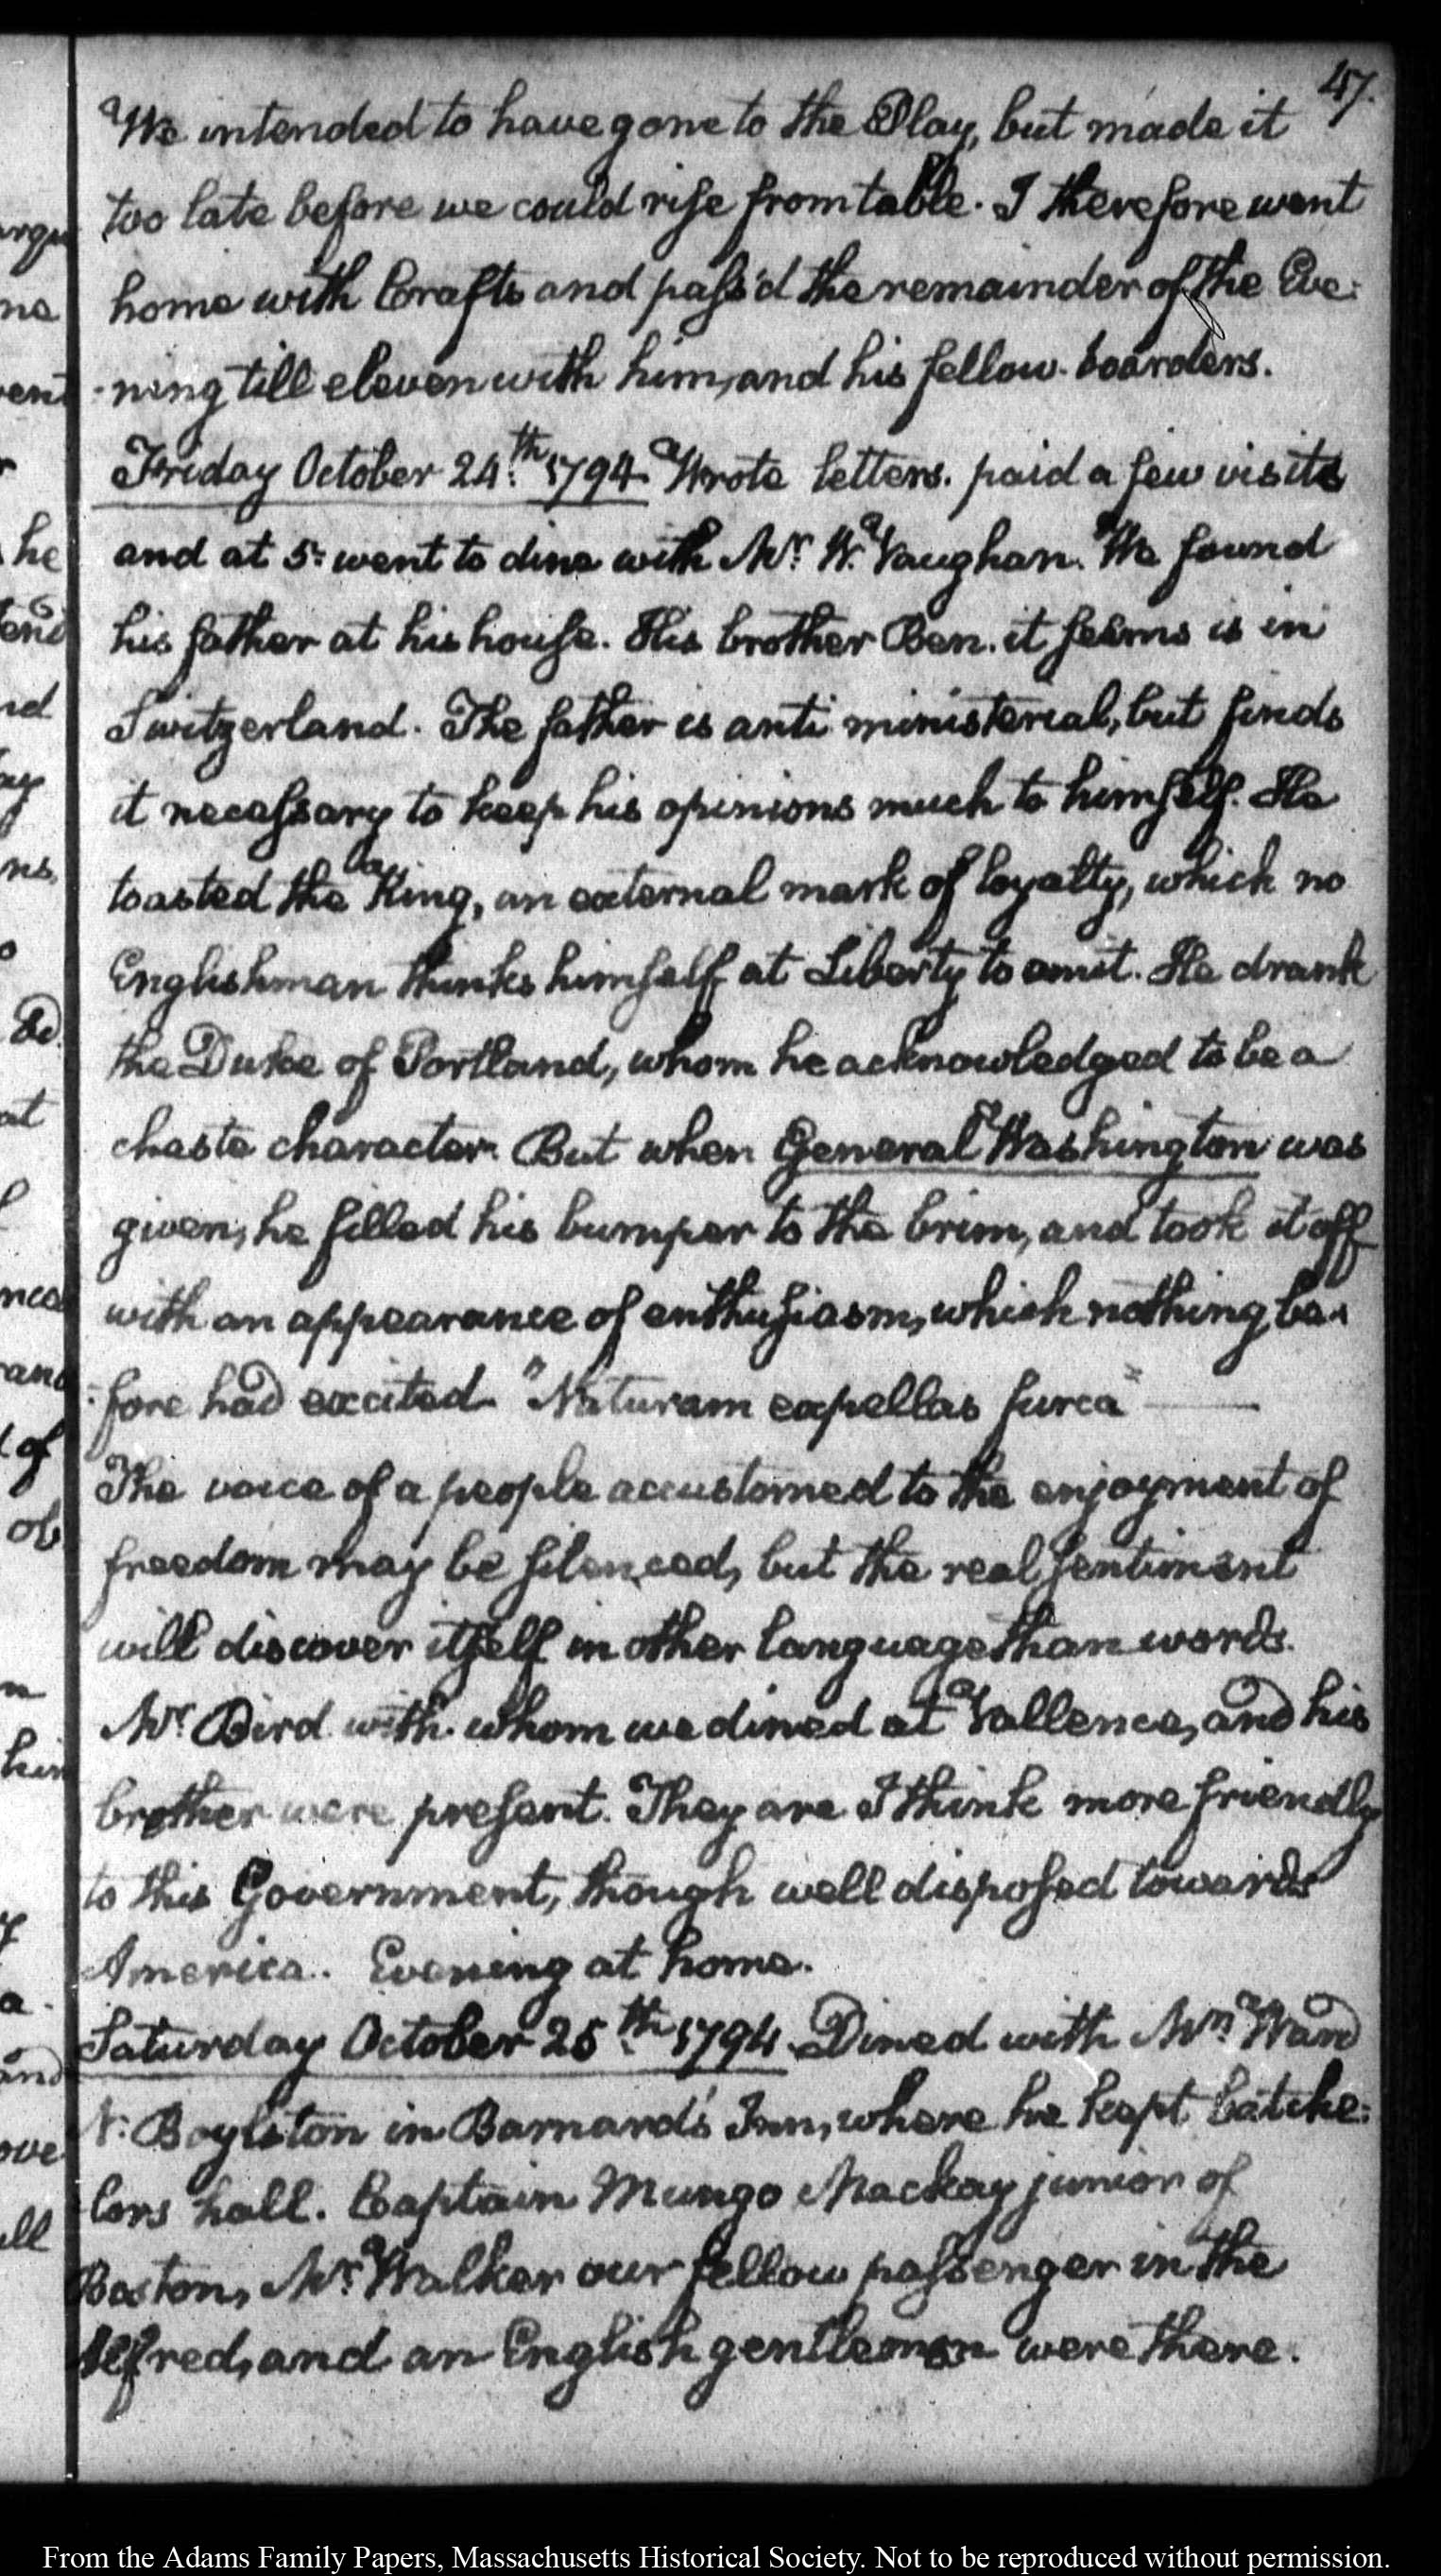 47.
We intended to have gone to the Play, but made it
too late before we could rise from table. I therefore went
home with Crafts and pass'd the remainder of the Eve-
-ning till eleven with him, and his fellow-boarders.
Friday October 24.th 1794. Wrote letters. paid a few visits
and at 5. went to dine with Mr. W. Vaughan. We found
his father at his house. His brother Ben. it seems is in
Switzerland. The father is anti ministerial, but finds
it necessary to keep his opinions much to himself. He
toasted the King, an external mark of loyalty, which no
Englishman thinks himself at Liberty to omit. He drank
the Duke of Portland, whom he acknowledged to be a
chaste character. But when General Washington was
given, he filled his bumper to the brim, and took it off
with an appearance of enthusiasm, which nothing be-
-fore had excited. "Naturam expellas furca" ———
The voice of a people accustomed to the enjoyment of
freedom may be silenced, but the real sentiment
will discover itself in other language than words.
Mr. Bird with whom we dined at Vallence, and his
brother were present. They are I think more friendly
to this Government, though well disposed towards
America. Evening at home.
Saturday October 25.th 1794. Dined with Mr. Ward
N. Boylston in Barnard's Inn, where he kept batche-
-lors hall. Captain Mungo Mackay junior of
Boston, Mr. Walker our fellow passenger in the
Alfred, and an English gentleman were there.
From the Adams Family Papers, Massachusetts Historical Society. Not to be reproduced without permission.